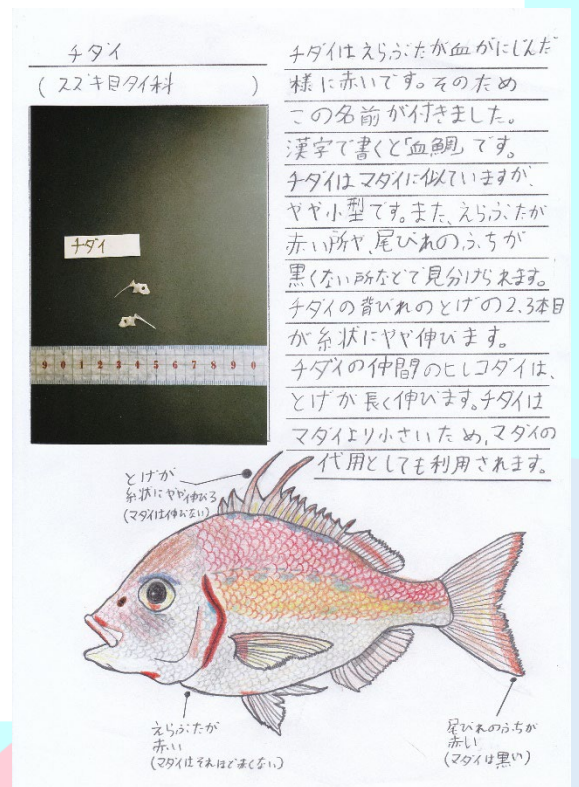 チダイ
(スズキ目タイ科)
チダイ
9 0 1 2 3 4 5 6 7 8 9 0
チダイはえらぶたが血がにじんだ
様に赤いです。そのため
この名前が付きました。
漢字で書くと「血鯛」です。
チダイはマダイに似ていますが、
やや小型です。また、えらぶたが
赤い所や、尾びれのふちが
黒くない所などで見分けられます。
チダイの背びれのとげの2,3本目
が糸状にやや伸びます。
チダイの仲間のヒレコダイは、
とげが長く伸びます。チダイは
マダイより小さいため、マダイの
代用としても利用されます。
とげが
糸状にやや伸びる
(マダイは伸びない)
えらぶたが
赤い
(マダイはそれほど赤くない)
尾びれのふちが
赤い
(マダイは黒い)